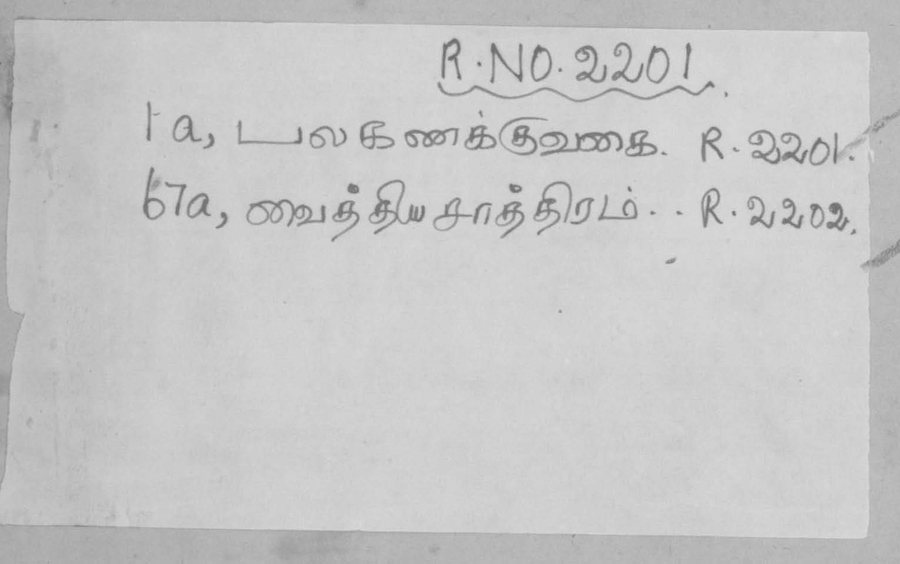 R.NO.2201.
1a, பலகணக்குவகை. R.2201.
67a, வைத்திய சாத்திரம்.. R.2202.